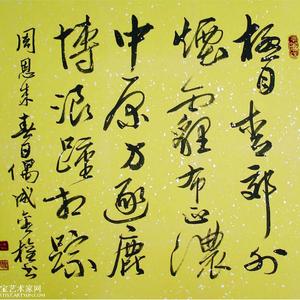 极目青郊外
煙霾布正濃
中原方逐鹿
博浪踵相踪
周恩来春日偶成
宝艺术家网